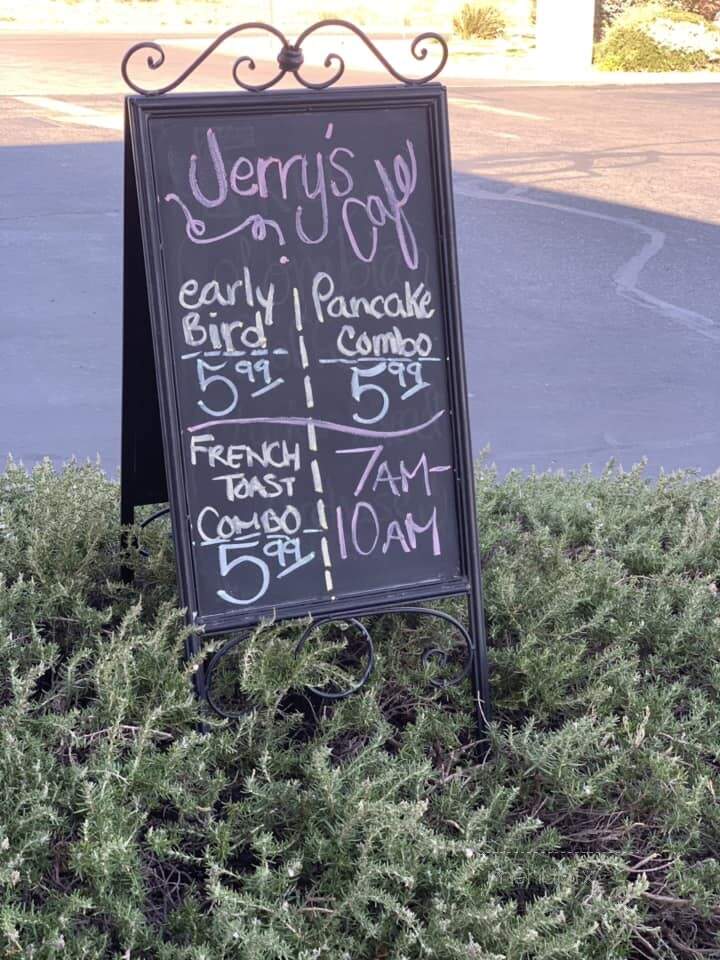 Jerry's Café
early
Bird
5.99
Pancake
Combo
5.99
FRENCH
TOAST
COMBO
5.99
7AM-
10AM